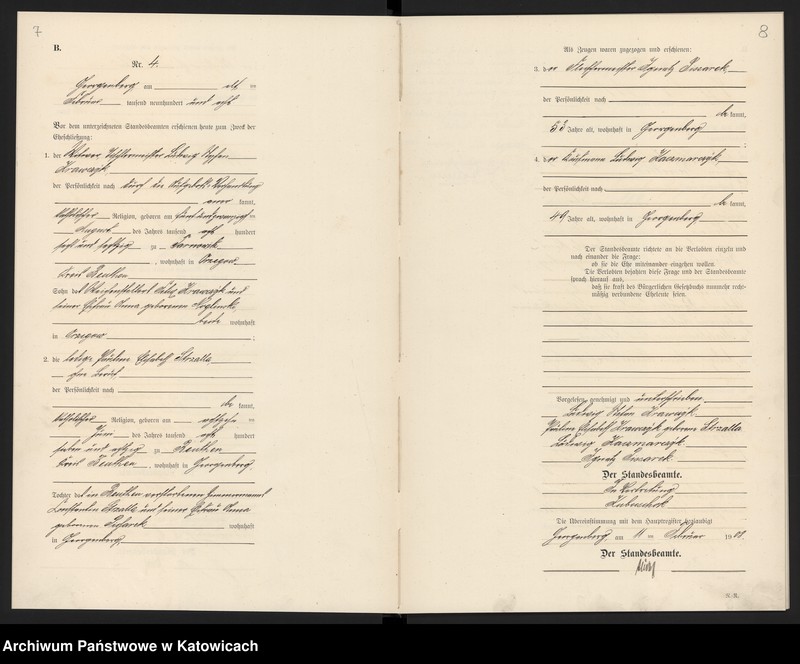 7
B.
Nr. 4.
Georgenberg am elf ten
Februar tausend neunhundert und acht
Vor dem unterzeichneten Standesbeamten erschienen heute zum Zweck der
Eheschließung:
1. der Ludwig
Krawczyk
der Persönlichkeit nach durch
kannt,
katholischer Religion, geboren am fünfundzwanzig ten
August des Jahres tausend acht hundert
zu Tarnowitz
, wohnhaft in Orzegow
Kreis Beuthen
Sohn des Krawczyk und
seiner Ehefrau Anna geborenen
beide wohnhaft
in Orzegow ;
2. die ledige Pauline Elisabeth Strzalla
ohne Beruf
der Persönlichkeit nach
be kannt,
katholischer Religion, geboren am achtzehn ten
Juni des Jahres tausend acht hundert
sieben und achtzig zu Beuthen
Kreis Beuthen , wohnhaft in Georgenberg
Tochter des in Beuthen verstorbenen
Constantin Strzalla und seiner Ehefrau Anna
geborenen Pissarek wohnhaft
in Georgenberg
8
Als Zeugen waren zugezogen und erschienen:
3. der Fleischermeister Ignatz Pissarek
der Persönlichkeit nach
be kannt,
53 Jahre alt, wohnhaft in Georgenberg
;
4. der Kaufmann Ludwig Kaczmarczyk
der Persönlichkeit nach
be kannt,
49 Jahre alt, wohnhaft in Georgenberg
Der Standesbeamte richtete an die Verlobten einzeln und
nach einander die Frage:
ob sie die Ehe miteinander eingehen wollen.
Die Verlobten bejahten diese Frage und der Standesbeamte
sprach hierauf aus,
daß sie kraft des Bürgerlichen Gesetzbuchs nunmehr recht-
mäßig verbundene Eheleute seien.
Vorgelesen, genehmigt und unterschrieben
Ludwig Krawczyk
Pauline Elisabeth Krawczyk geborene Strzalla
Ludwig Kaczmarczyk
Ignatz Pissarek
Der Standesbeamte.
In Vertretung
Die Übereinstimmung mit dem Hauptregister beglaubigt
Georgenberg, am 11 ten Februar 1908.
Der Standesbeamte.
Archiwum Państwowe w Katowicach